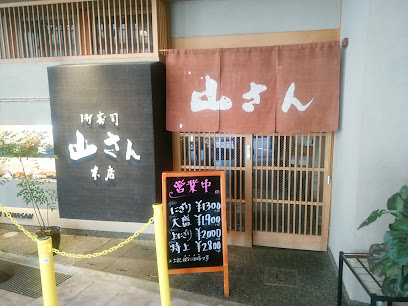 御寿司
山さん
本店
山さん
営業中
にぎり ¥1300
大盛 ¥1900
上にぎり ¥2000
特上 ¥2800